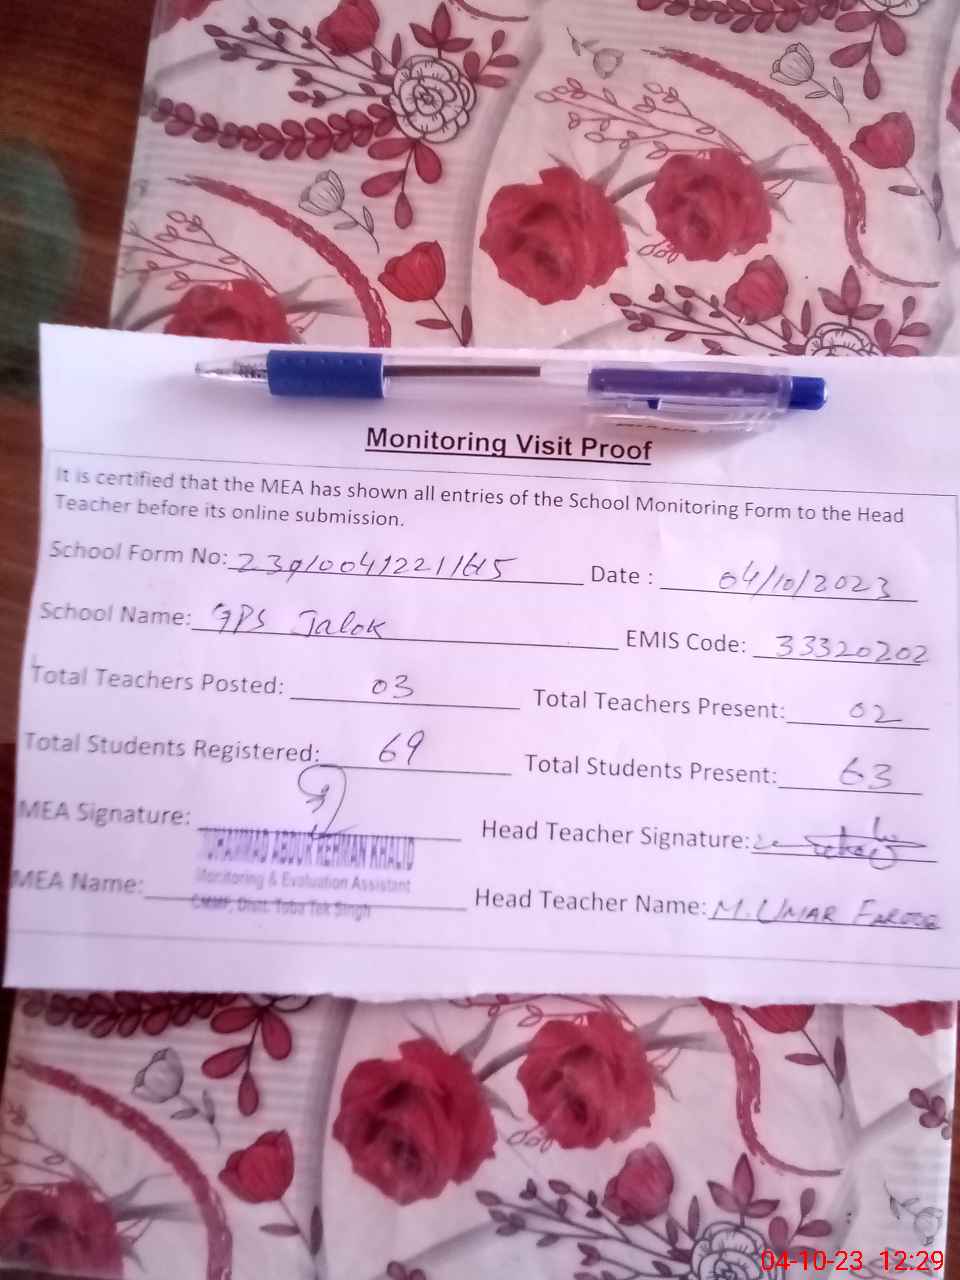 Monitoring Visit Proof
It is certified that the MEA has shown all entries of the School Monitoring Form to the Head
Teacher before its online submission.
School Form No: Date : 04/10/2023
School Name: GPS Jalok EMIS Code: 33320202
Total Teachers Posted: 03 Total Teachers Present: 02
Total Students Registered: 69 Total Students Present: 63
MEA Signature: Head Teacher Signature:
MUHAMMAD ABDUR REHMAN KHALID
Monitoring & Evaluation Assistant
MEA Name: Distt. Toba Tek Singh Head Teacher Name: M. UMAR FAROOQ
04-10-23 12:29